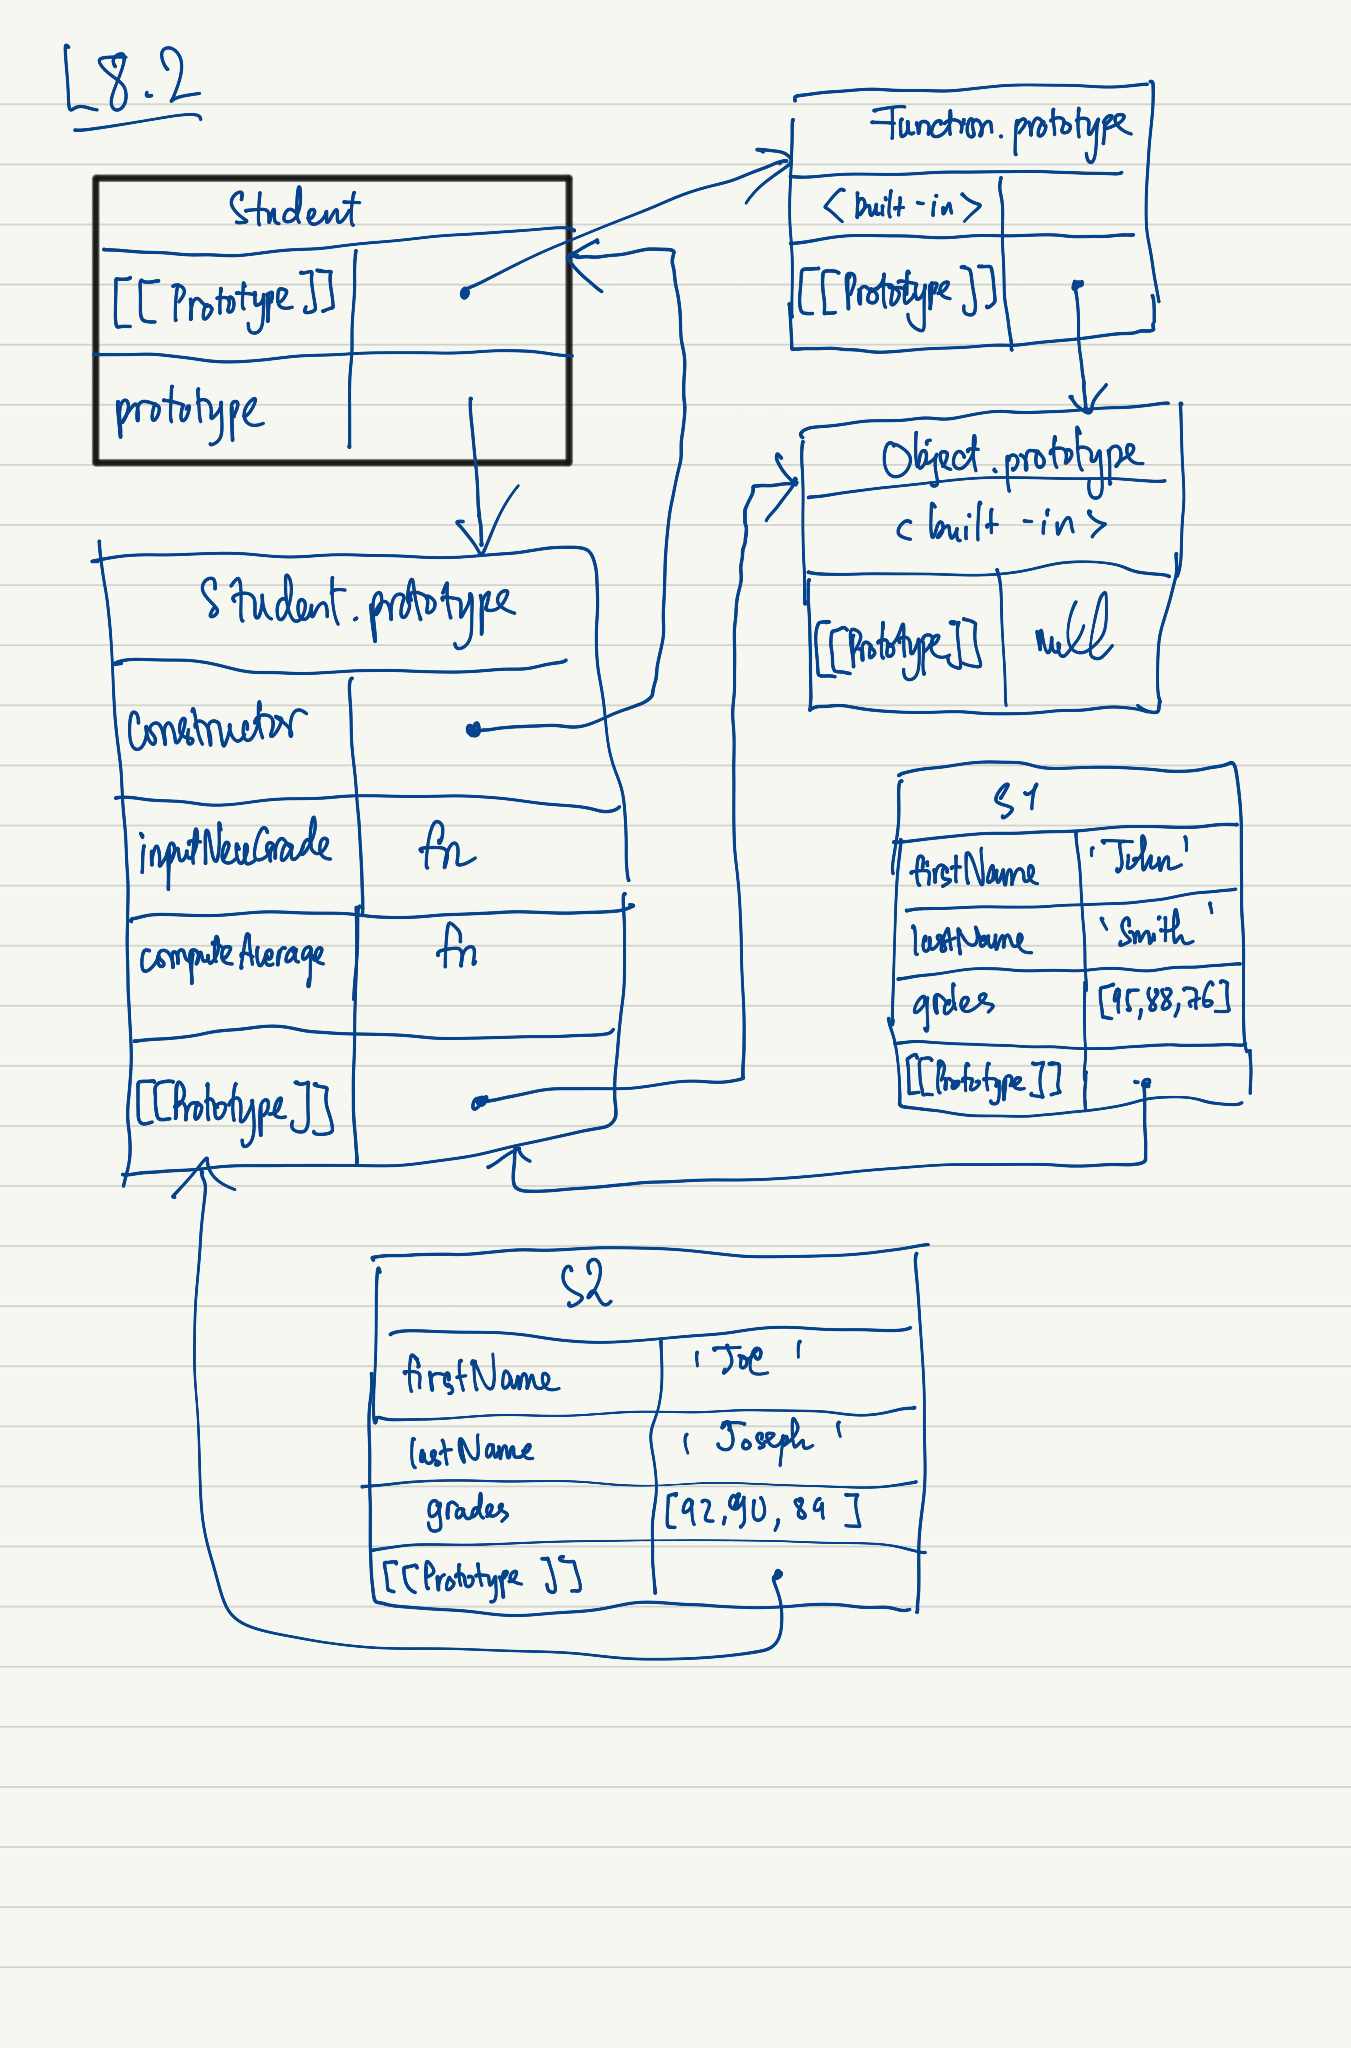 L8.2
Student
[[Prototype]]
prototype
Function.prototype
<built-in>
[[Prototype]]
Object.prototype
<built-in>
[[Prototype]] null
Student.prototype
constructor
inputNewGrade fn
computeAverage fn
[[Prototype]]
S1
firstName 'John'
lastName 'Smith'
grdes [95,88,76]
[[Prototype]]
S2
firstName 'Joe'
lastName 'Joseph'
grades [92,90,89]
[[Prototype]]